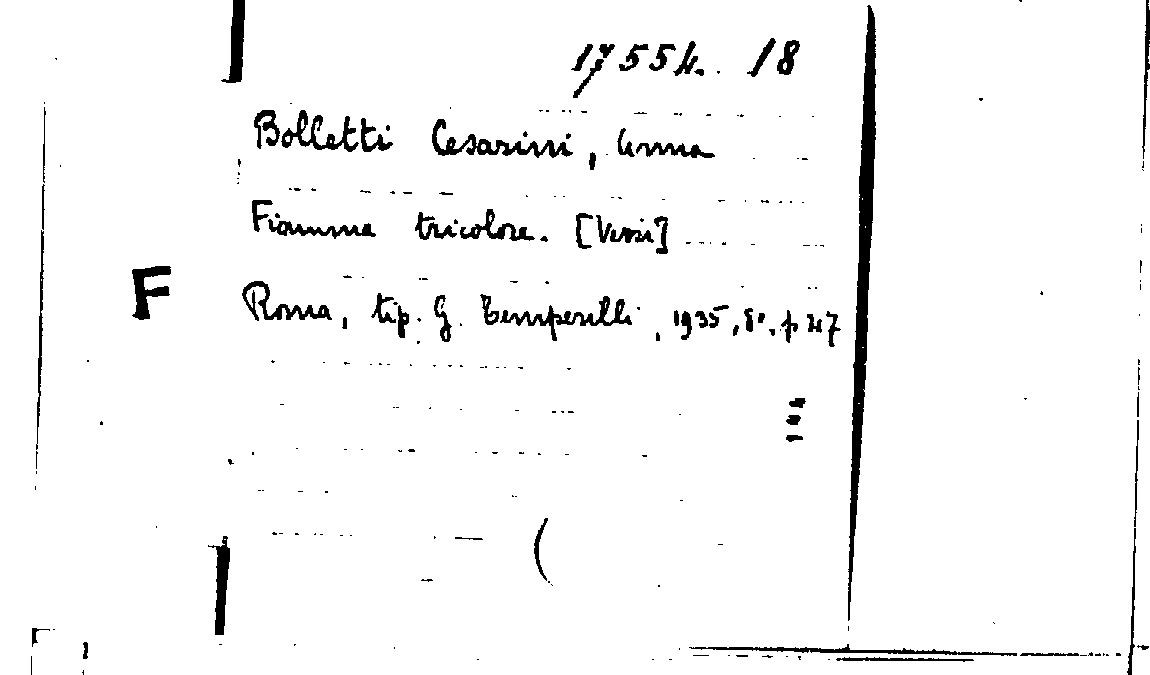 17554. 18
Bolletti Cesarini, Anna
Fiamma tricolore. [Versi]
F
Roma, tip. G. Temperilli, 1935, 8°, p 47